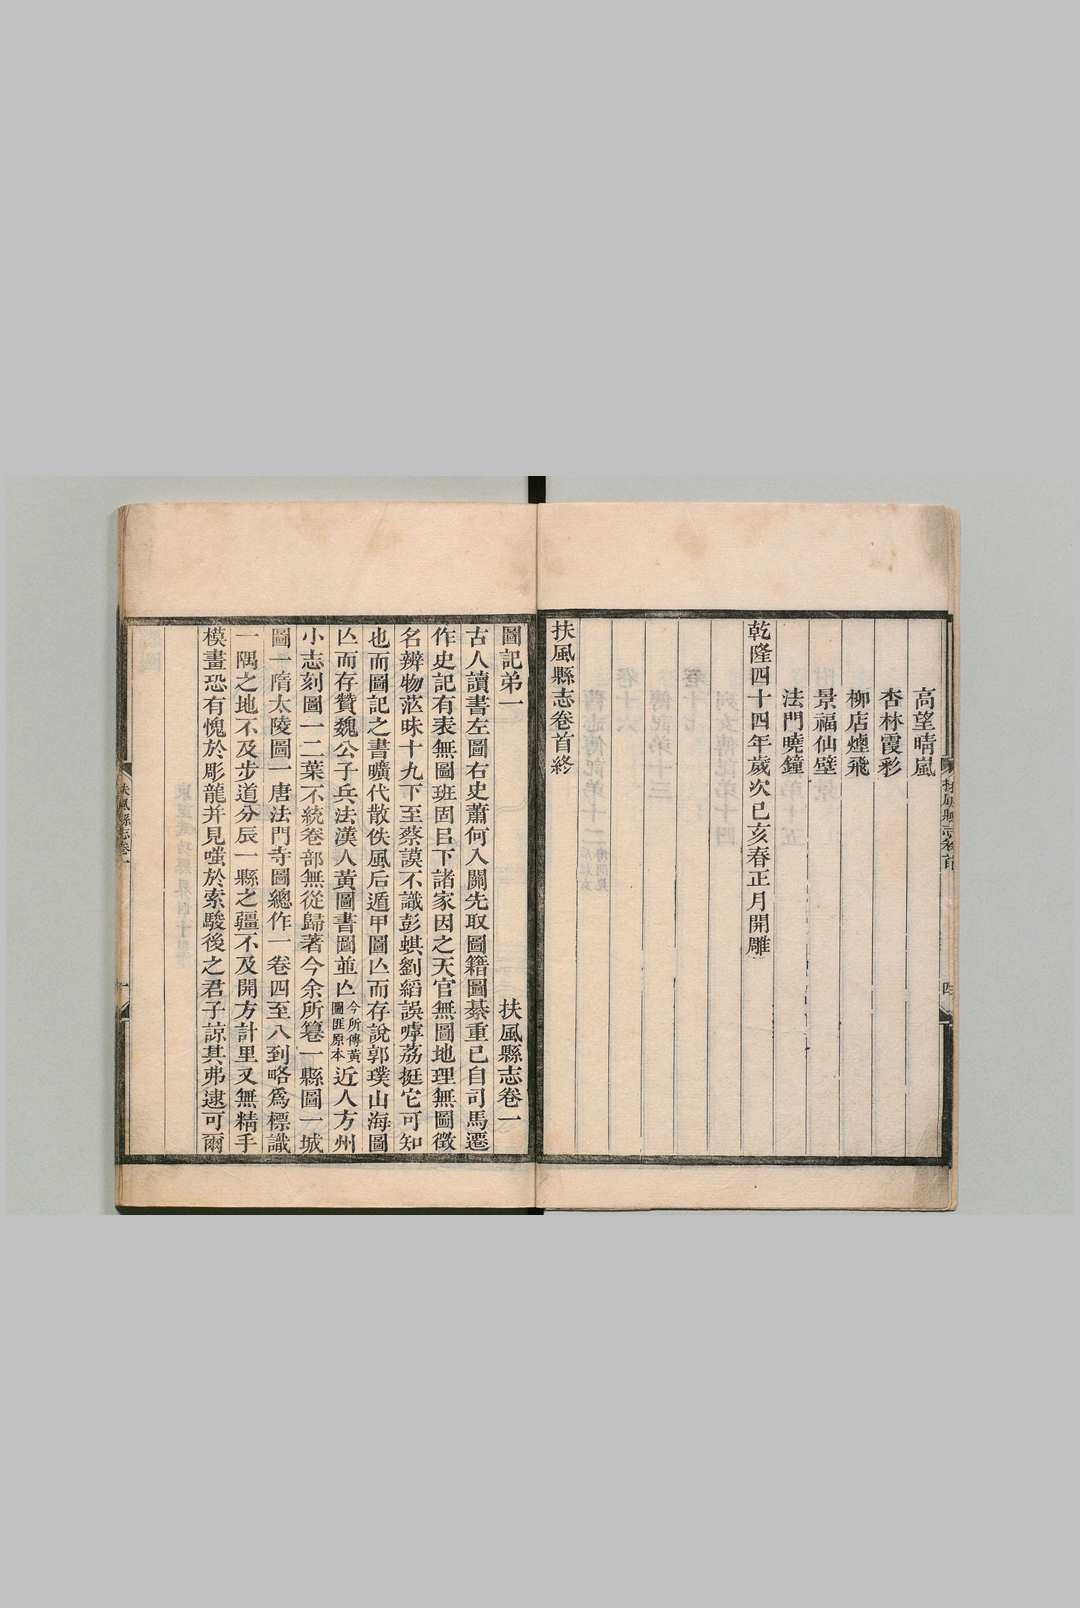 高望晴嵐
杏林霞彩
柳店煙飛
景福仙壁
法門曉鐘
乾隆四十四年歲次己亥春正月開雕
扶風縣志卷首終
扶風縣志卷首
四
圖記弟一
扶風縣志卷一
古人讀書左圖右史蕭何入關先取圖籍圖綦重已自司馬遷
作史記有表無圖班固㠯下諸家因之天官無圖地理無圖徵
名辨物茫昧十九下至蔡謨不識彭蜞劉縚誤嘑荔挺它可知
也而圖記之書曠代散佚風后遁甲圖亾而存說郭璞山海圖
亾而存贊魏公子兵法漢人黃圖書圖並亾今所傳黃圖匪原本近人方州
小志刻圖一二葉不統卷部無從歸著今余所篹一縣圖一城
圖一隋太陵圖一唐法門寺圖總作一卷四至八到略爲標識
一隅之地不及步道分辰一縣之疆不及開方計里又無精手
模畫恐有愧於彫龍并見嗤於索駿後之君子諒其弗逮可爾
扶風縣志卷一
一